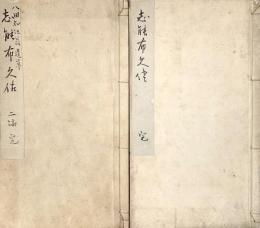 志能布久佐
完
八田知紀翁遺草
志能布久佐
二編 完